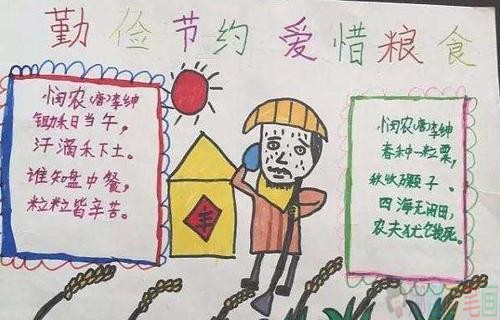 勤俭节约 爱惜粮食
悯农(唐)李绅
锄禾日当午,
汗滴禾下土。
谁知盘中餐,
粒粒皆辛苦。
丰
悯农(唐)李绅
春种一粒粟,
秋收万颗子。
四海无闲田,
农夫犹饿死。
笔画